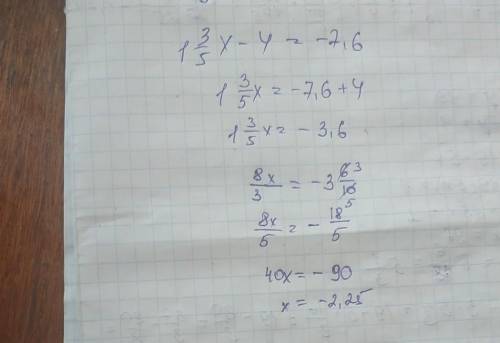 1 3/5 x - 4 = -7,6
1 3/5 x = -7,6 + 4
1 3/5 x = - 3,6
8x/3 = -3 6/10 3 5
8x/5 = - 18/5
40x = - 90
x = -2,25